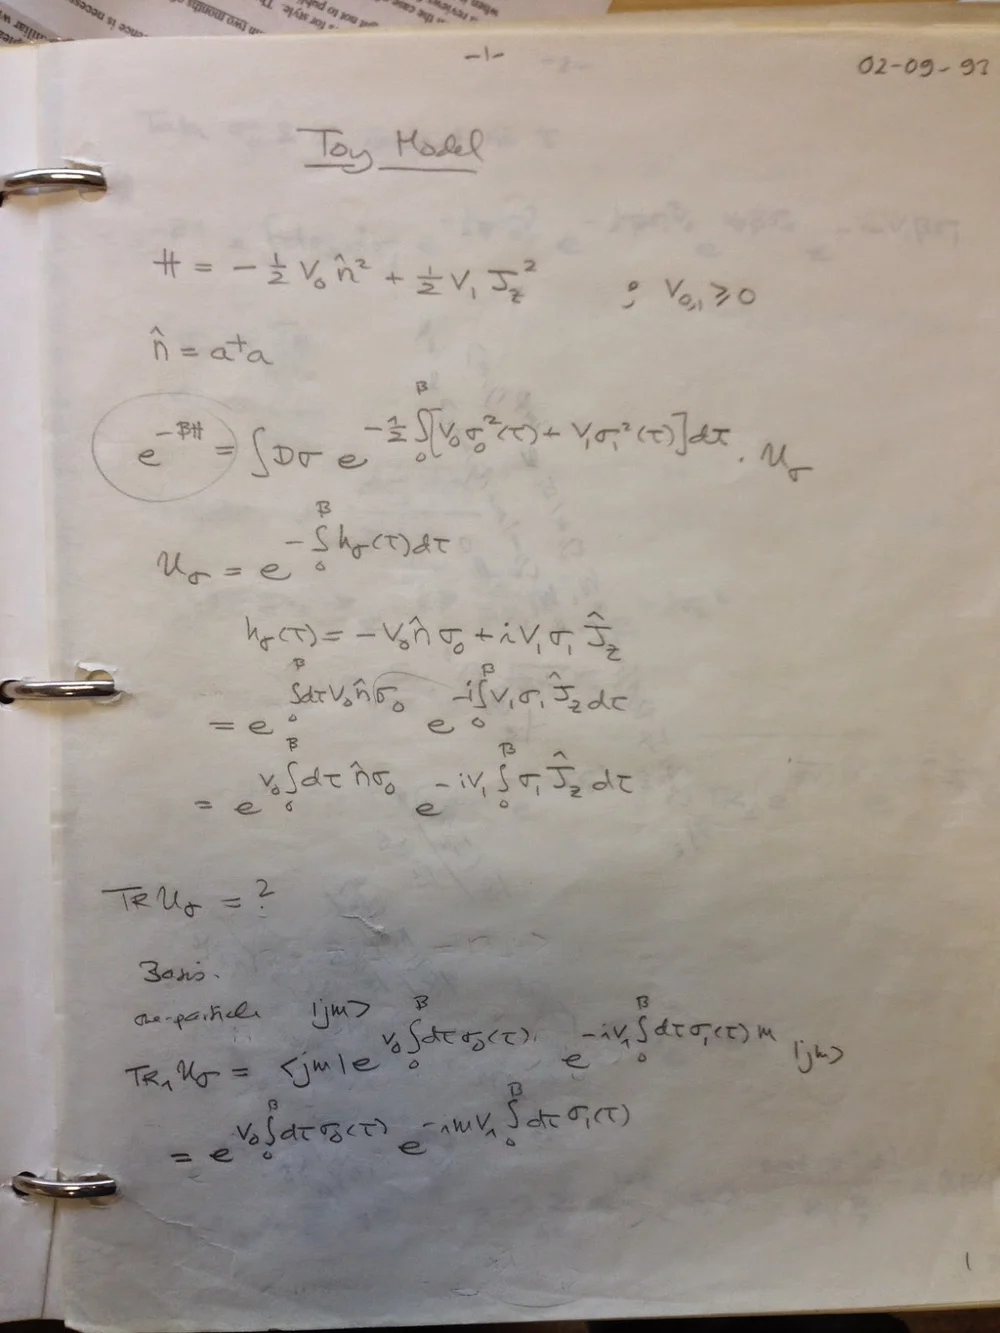 -1-
02-09-93
Toy Model
H = - 1/2 V₀ n̂² + 1/2 V₁ J_z² ; V₀,₁ ⩾ 0
n̂ = a⁺a
e^{-βH} = ∫Dσ e^{-1/2 ∫₀^β [V₀σ₀²(τ) + V₁σ₁²(τ)]dτ} . U_σ
U_σ = e^{-∫₀^β h_σ(τ)dτ}
h_σ(τ) = - V₀ n̂ σ₀ + i V₁ σ₁ Ĵ_z
= e^{∫₀^β dτ V₀ n̂ σ₀} e^{-i∫₀^β V₁ σ₁ Ĵ_z dτ}
= e^{V₀∫₀^β dτ n̂ σ₀} e^{-iV₁∫₀^β σ₁ Ĵ_z dτ}
TR U_σ = ?
Basis.
one-particle |jm>
TR₁ U_σ = <jm| e^{V₀∫₀^β dτ σ₀(τ)} e^{-iV₁∫₀^β dτ σ₁(τ) m} |jm>
= e^{V₀∫₀^β dτ σ₀(τ)} e^{-imV₁∫₀^β dτ σ₁(τ)}
1